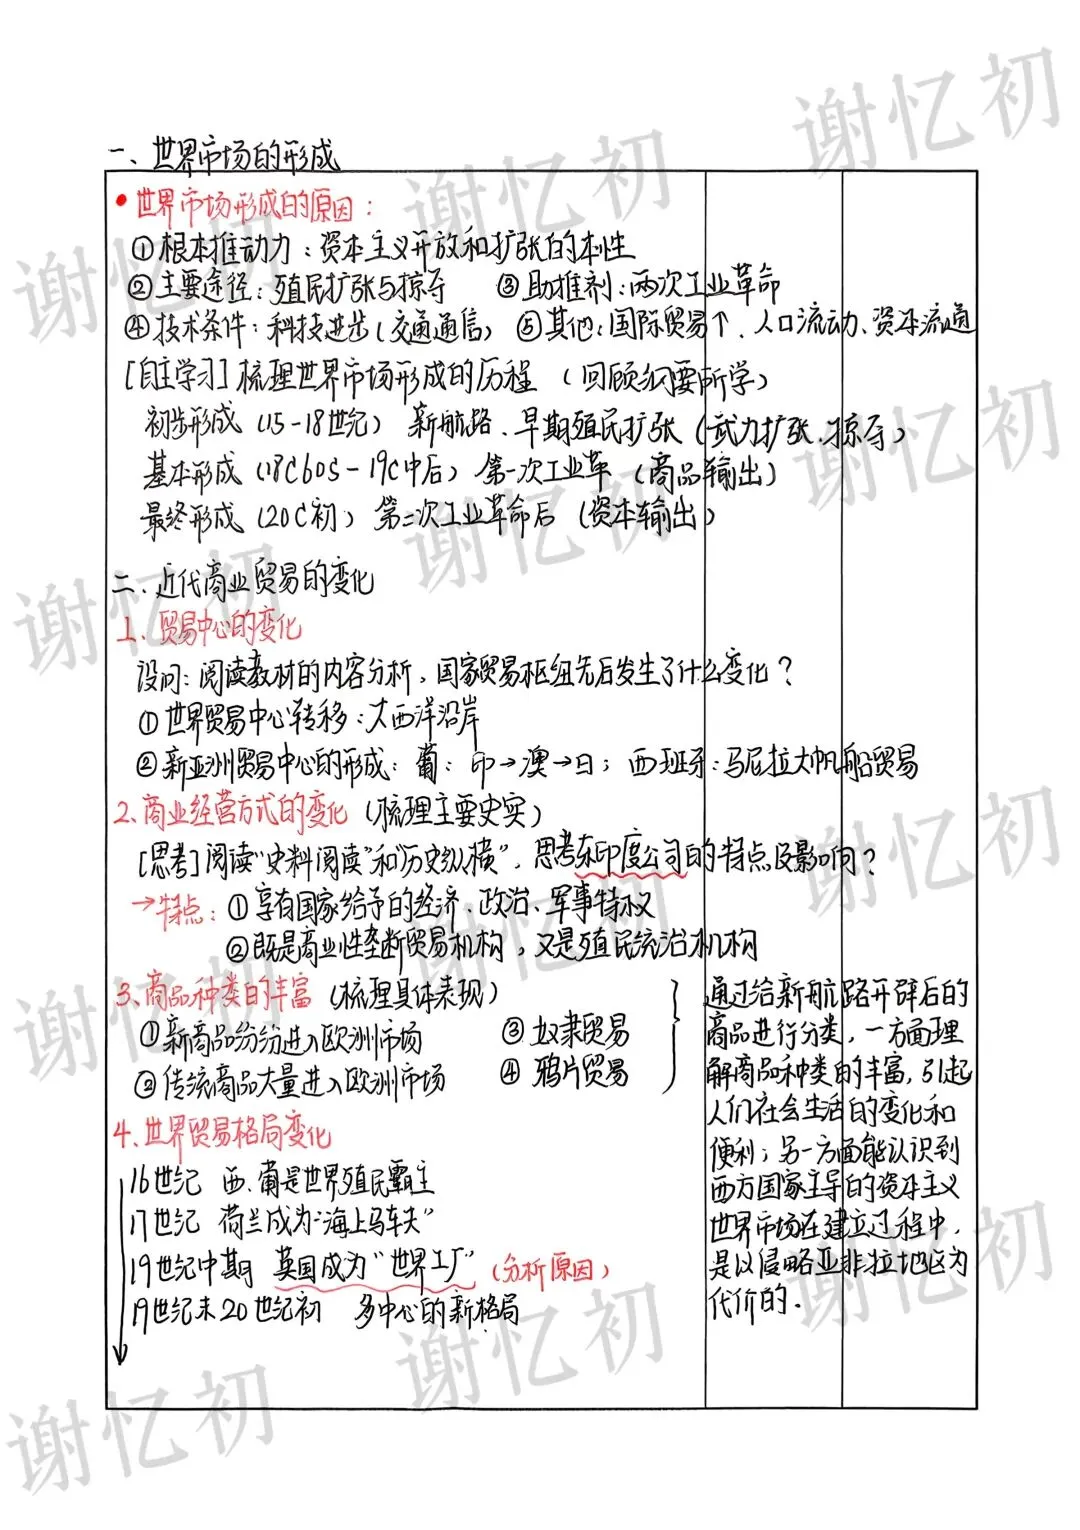 一、世界市场的形成
•世界市场形成的原因：
①根本推动力：资本主义开放和扩张的本性
②主要途径：殖民扩张与掠夺 ③助推剂：两次工业革命
④技术条件：科技进步(交通通信) ⑤其他：国际贸易↑、人口流动、资本流通
[自主学习]梳理世界市场形成的历程（回顾纲要所学）
初步形成（15-18世纪） 新航路、早期殖民扩张（武力扩张、掠夺）
基本形成（18C60S-19C中后）第一次工业革（商品输出）
最终形成（20C初）第二次工业革命后（资本输出）
二、近代商业贸易的变化
1、贸易中心的变化
设问：阅读教材的内容分析，国家贸易枢纽先后发生了什么变化？
①世界贸易中心转移：大西洋沿岸
②新亚洲贸易中心的形成：葡：印→澳→日；西班牙：马尼拉大帆船贸易
2、商业经营方式的变化（梳理主要史实）
[思考]阅读“史料阅读”和“历史纵横”，思考东印度公司的特点及影响？
→特点：①享有国家给予的经济、政治、军事特权
②既是商业性垄断贸易机构，又是殖民统治机构
3、商品种类的丰富（梳理具体表现）
①新商品纷纷进入欧洲市场 ③奴隶贸易
②传统商品大量进入欧洲市场 ④鸦片贸易
4、世界贸易格局变化
16世纪 西、葡是世界殖民霸主
17世纪 荷兰成为“海上马车夫”
19世纪中期 英国成为“世界工厂”（分析原因）
19世纪末20世纪初 多中心的新格局
通过给新航路开辟后的
商品进行分类，一方面理
解商品种类的丰富，引起
人们社会生活的变化和
便利；另一方面能认识到
西方国家主导的资本主义
世界市场在建立过程中，
是以侵略亚非拉地区为
代价的．
谢忆初
谢忆初
谢忆初
谢忆初
谢忆初
谢忆初
谢忆初
谢忆初
谢忆初
谢忆初
谢忆初
谢忆初